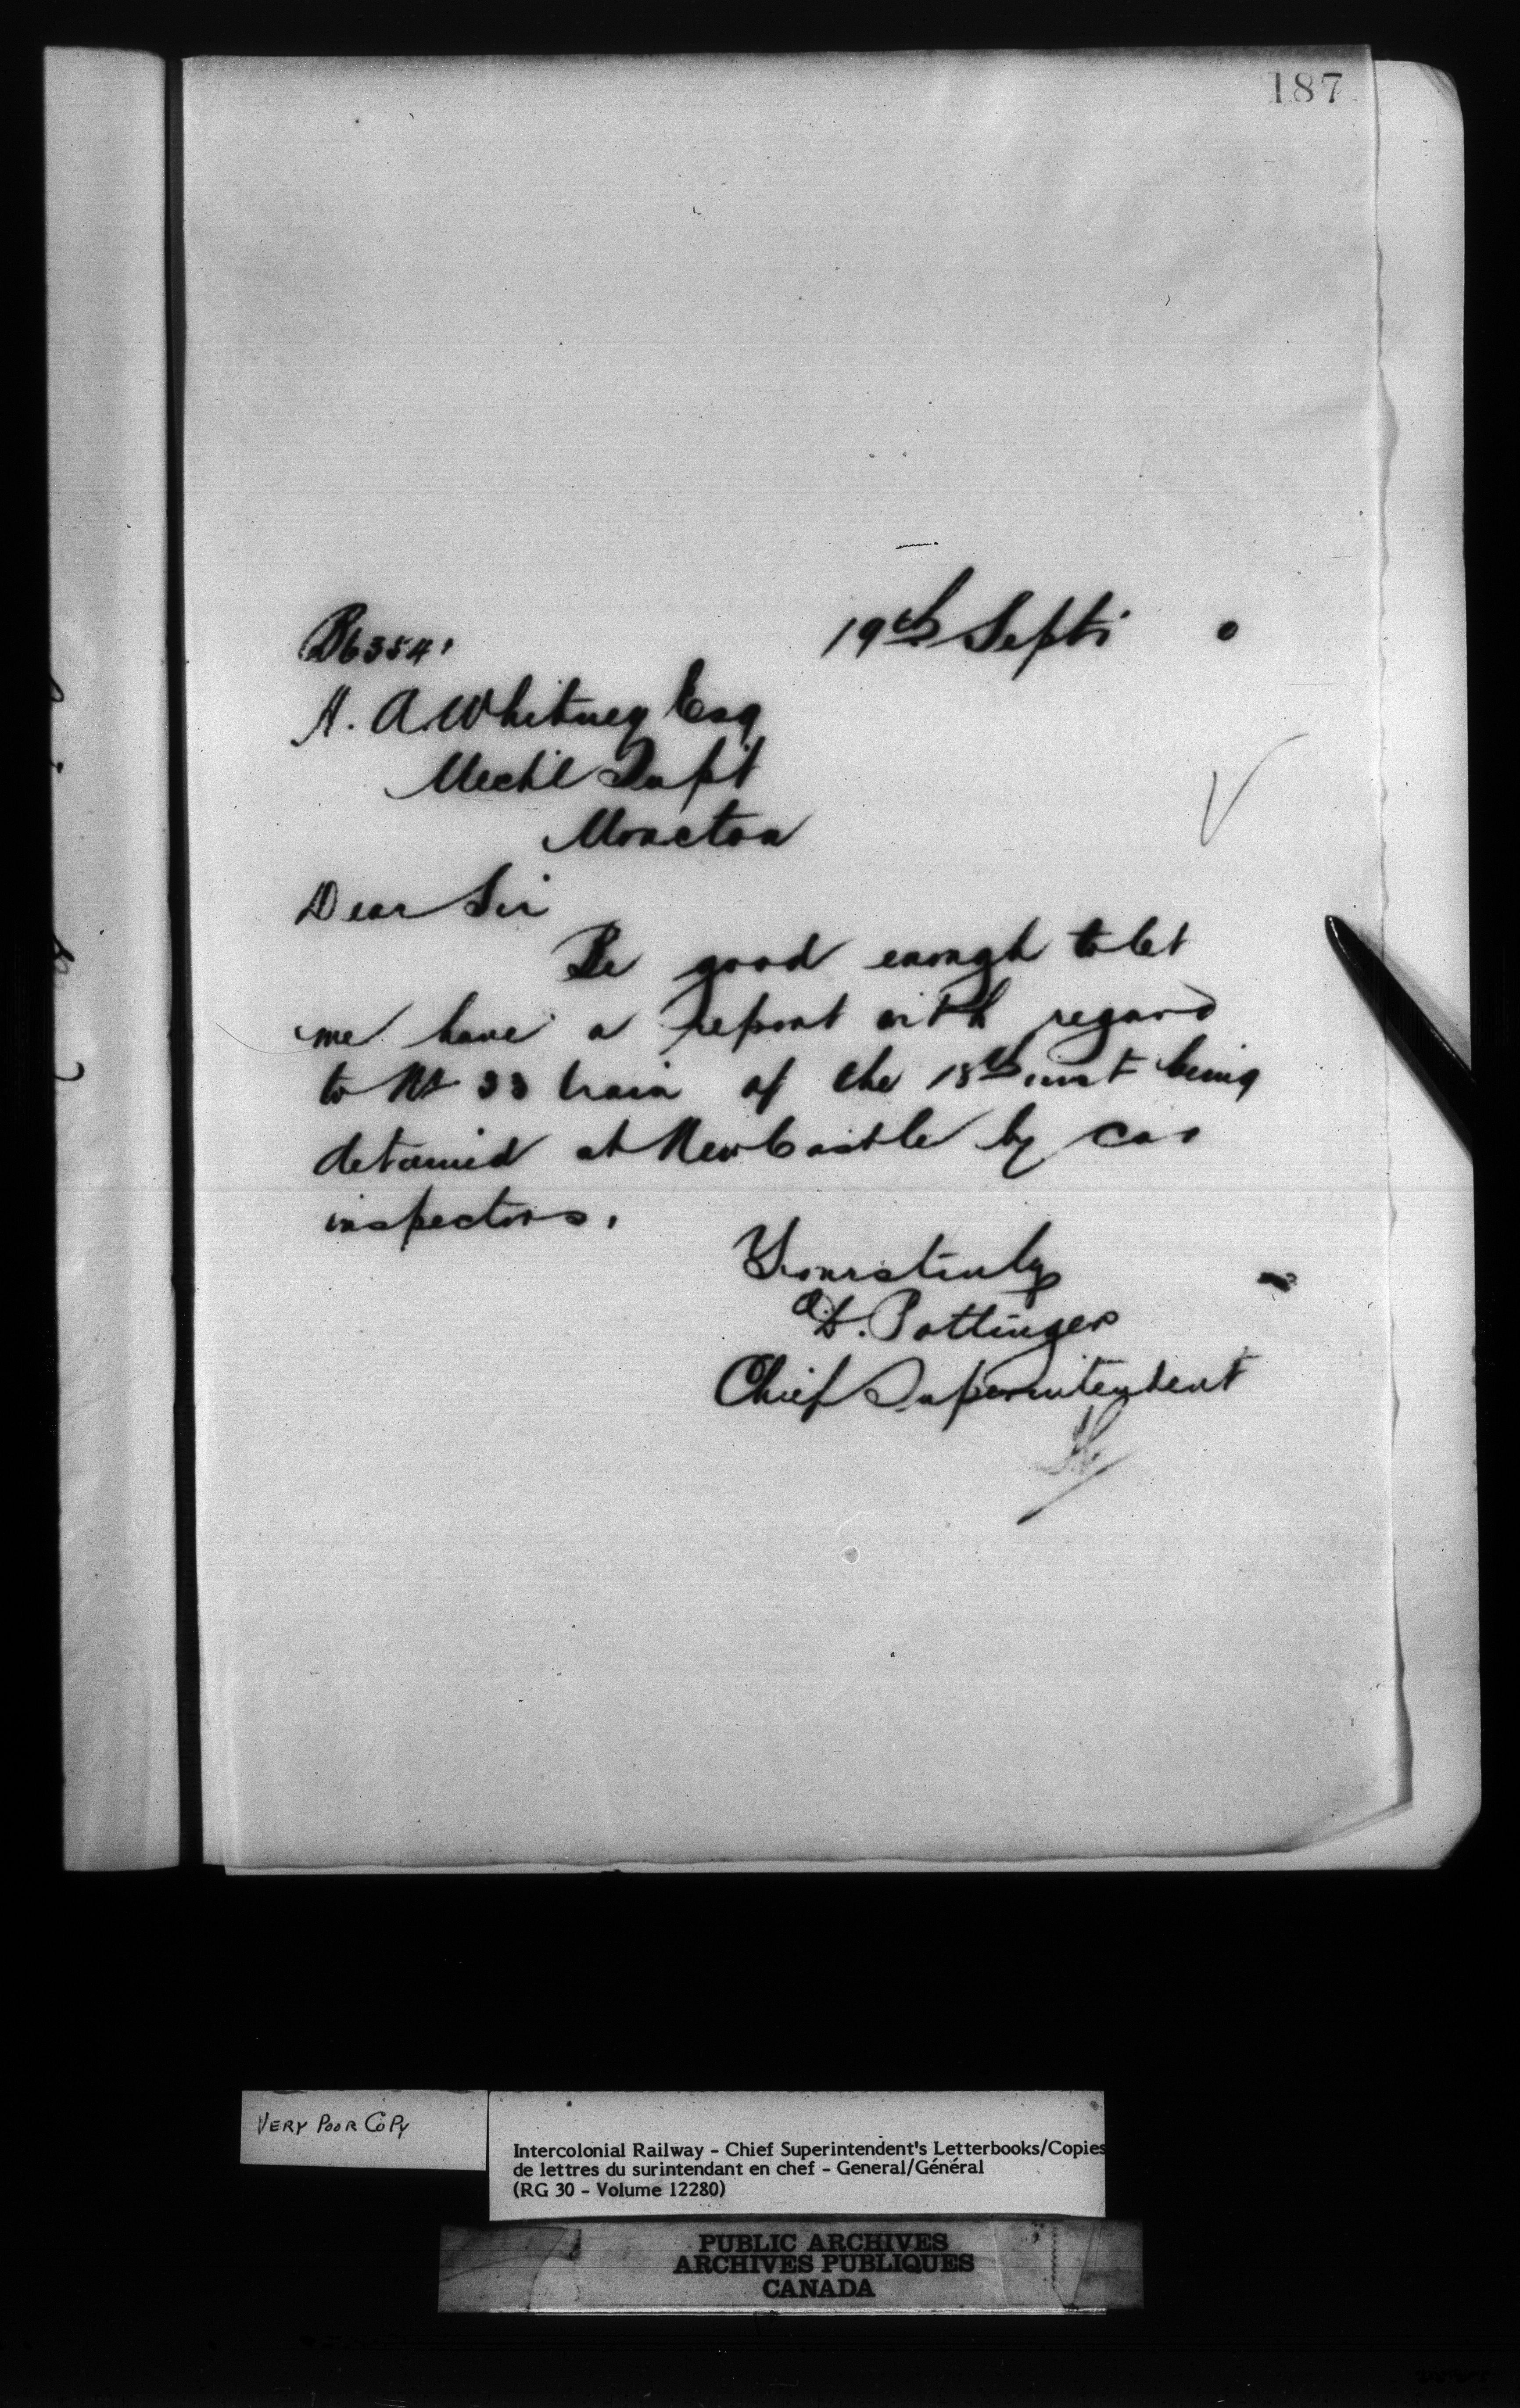 187
B6354.
19th Sept. 0
H. A. Whitney Esq
Mechl Supt
Moncton
Dear Sir
Be good enough to let
me have a report with regard
to No 33 train of the 18th inst being
detained at NewCastle by car
inspectors.
Yours truly
D. Pottinger
Chief Superintendent
VERY POOR COPY
Intercolonial Railway - Chief Superintendent's Letterbooks/Copies
de lettres du surintendant en chef - General/Général
(RG 30 - Volume 12280)
PUBLIC ARCHIVES
ARCHIVES PUBLIQUES
CANADA